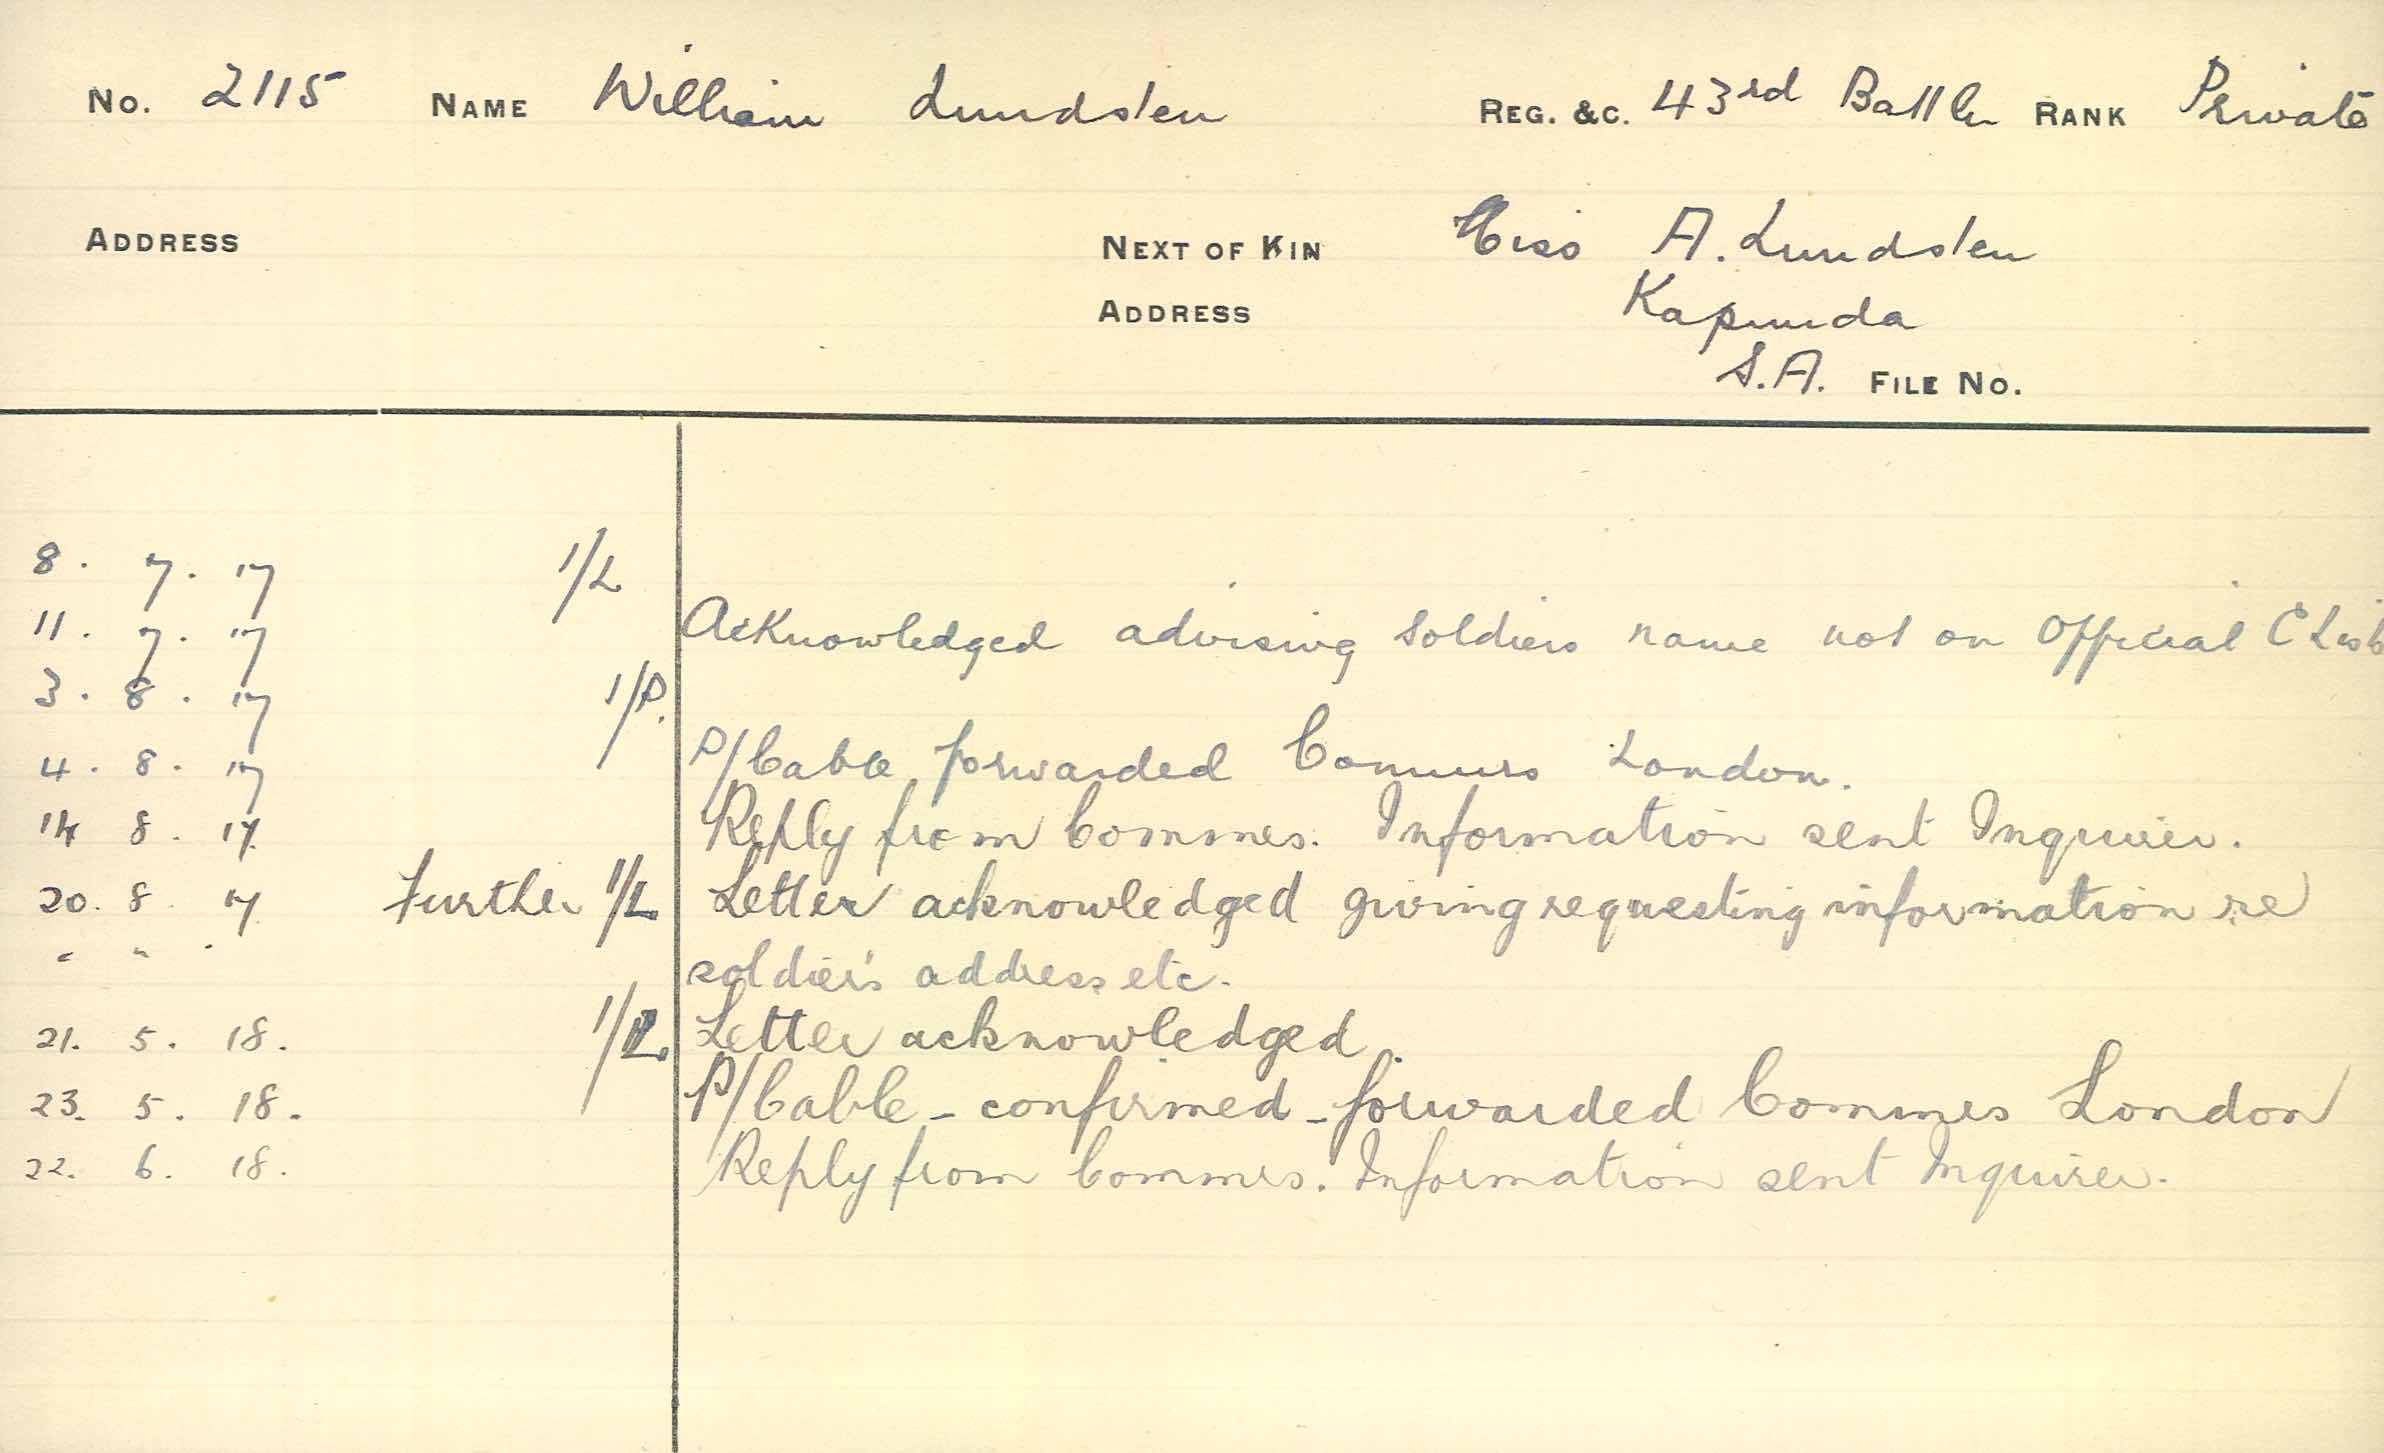 No. 2115 NAME William Lundsten REG. &C. 43rd Battln RANK Private
ADDRESS NEXT OF KIN Miss A. Lundsten
ADDRESS Kapunda
S.A. FILE No.
8. 7. 17 1/L
11. 7. 17 Acknowledged advising soldiers name not on Official C List
3. 8. 17 1/P.
4. 8. 17 P/Cable forwarded Commrs London.
14 8. 17. Reply from Commrs. Information sent Inquirer.
20. 8 17 Further 1/L Letter acknowledged giving requesting information re
" " " soldier's address etc.
21. 5. 18. 1/L. Letter acknowledged.
23. 5. 18. P/Cable - confirmed - forwarded Commrs London
22. 6. 18. Reply from Commrs. Information sent Inquirer.